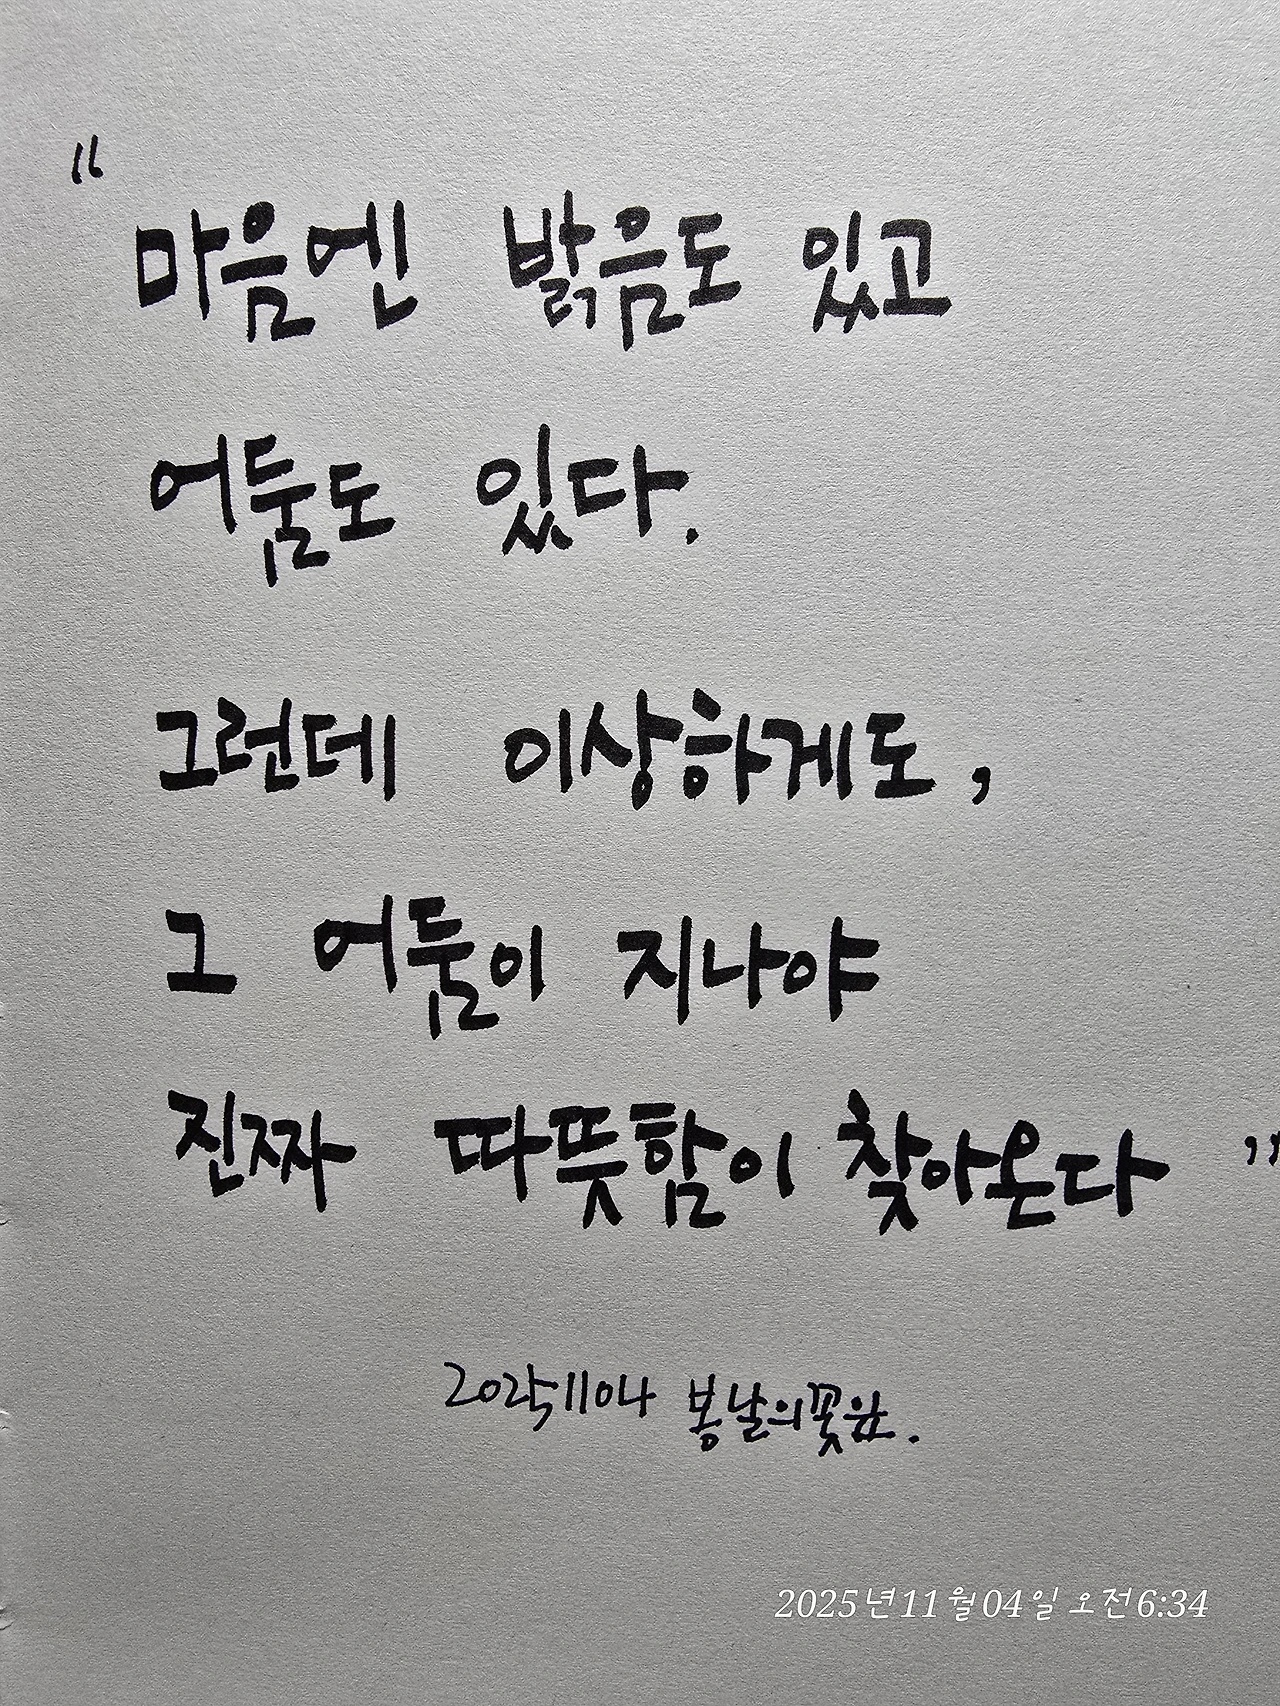 "
마음엔 밝음도 있고
어둠도 있다.
그런데 이상하게도,
그 어둠이 지나야
진짜 따뜻함이 찾아온다 "
20251104 봄날의꽃
2025년11월04일 오전6:34